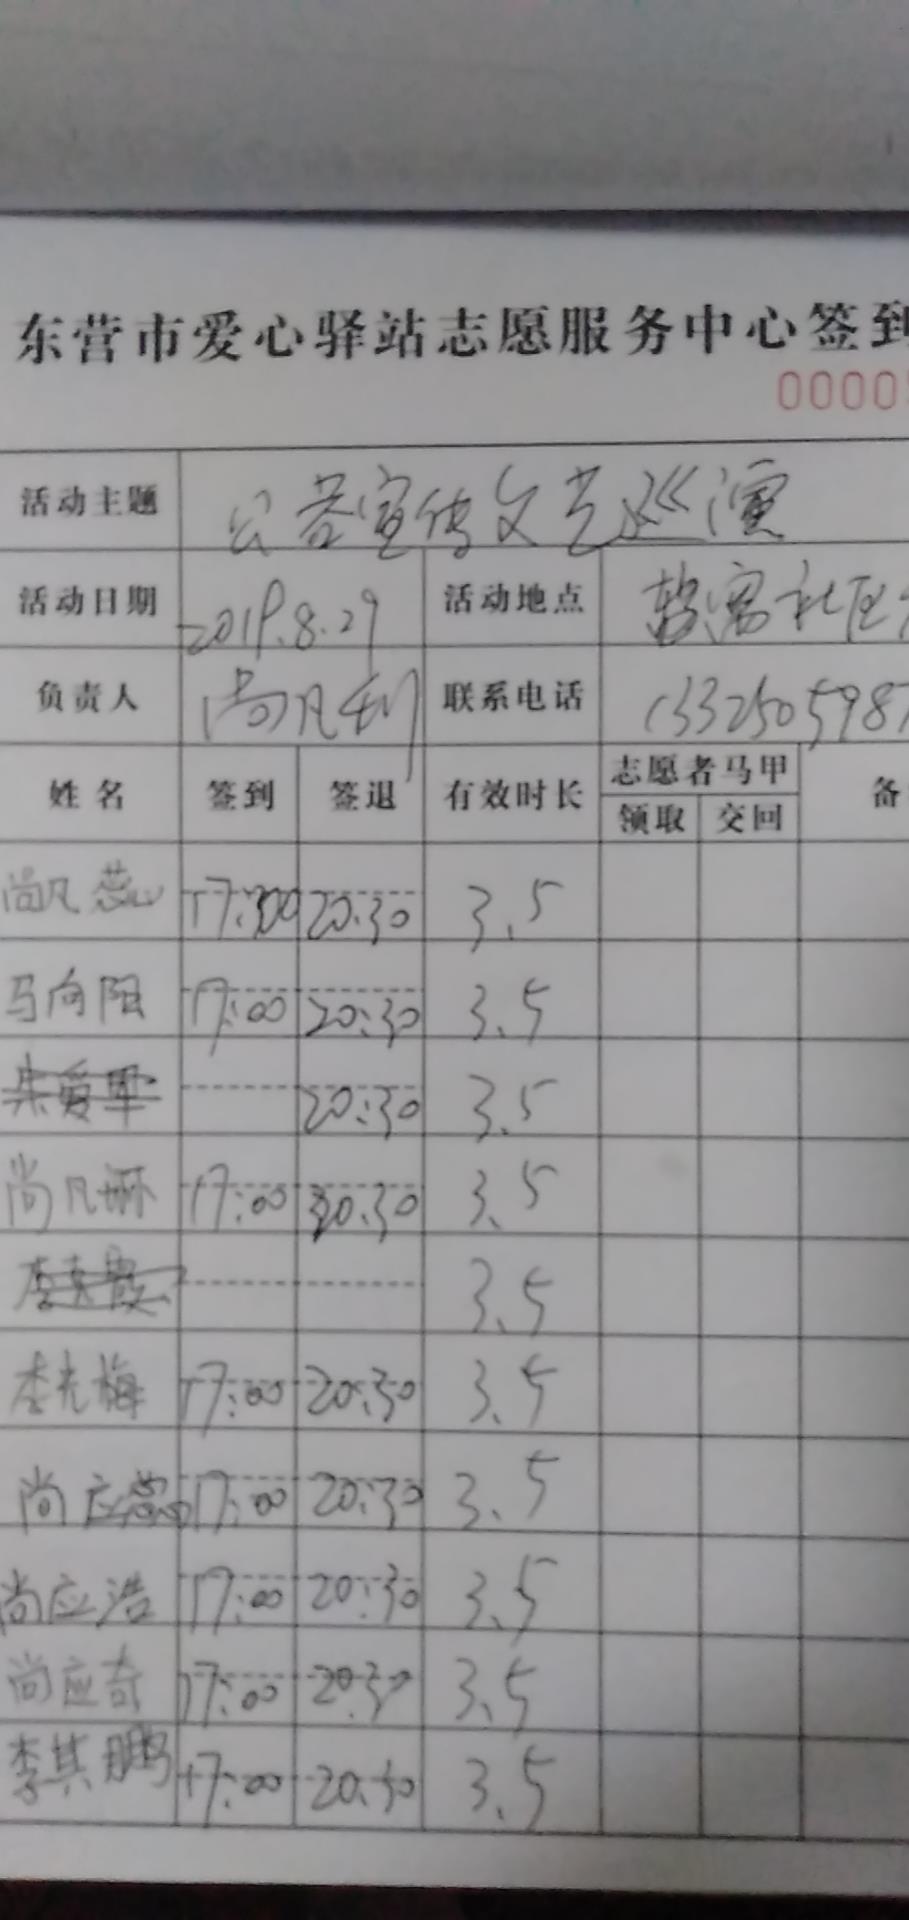 东营市爱心驿站志愿服务中心签到
0000
活动主题 公益宣传文艺巡演
活动日期 2019.8.29 活动地点 社区
负责人 尚凡利 联系电话 1332505987
姓名 签到 签退 有效时长 志愿者马甲 备
领取 交回
尚凡蕊 17:00 20:30 3.5
马向阳 17:00 20:30 3.5
20:30 3.5
尚凡琳 17:00 20:30 3.5
3.5
李光梅 17:00 20:30 3.5
尚应 17:00 20:30 3.5
尚应浩 17:00 20:30 3.5
尚应奇 17:00 20:30 3.5
李其鹏 17:00 20:30 3.5